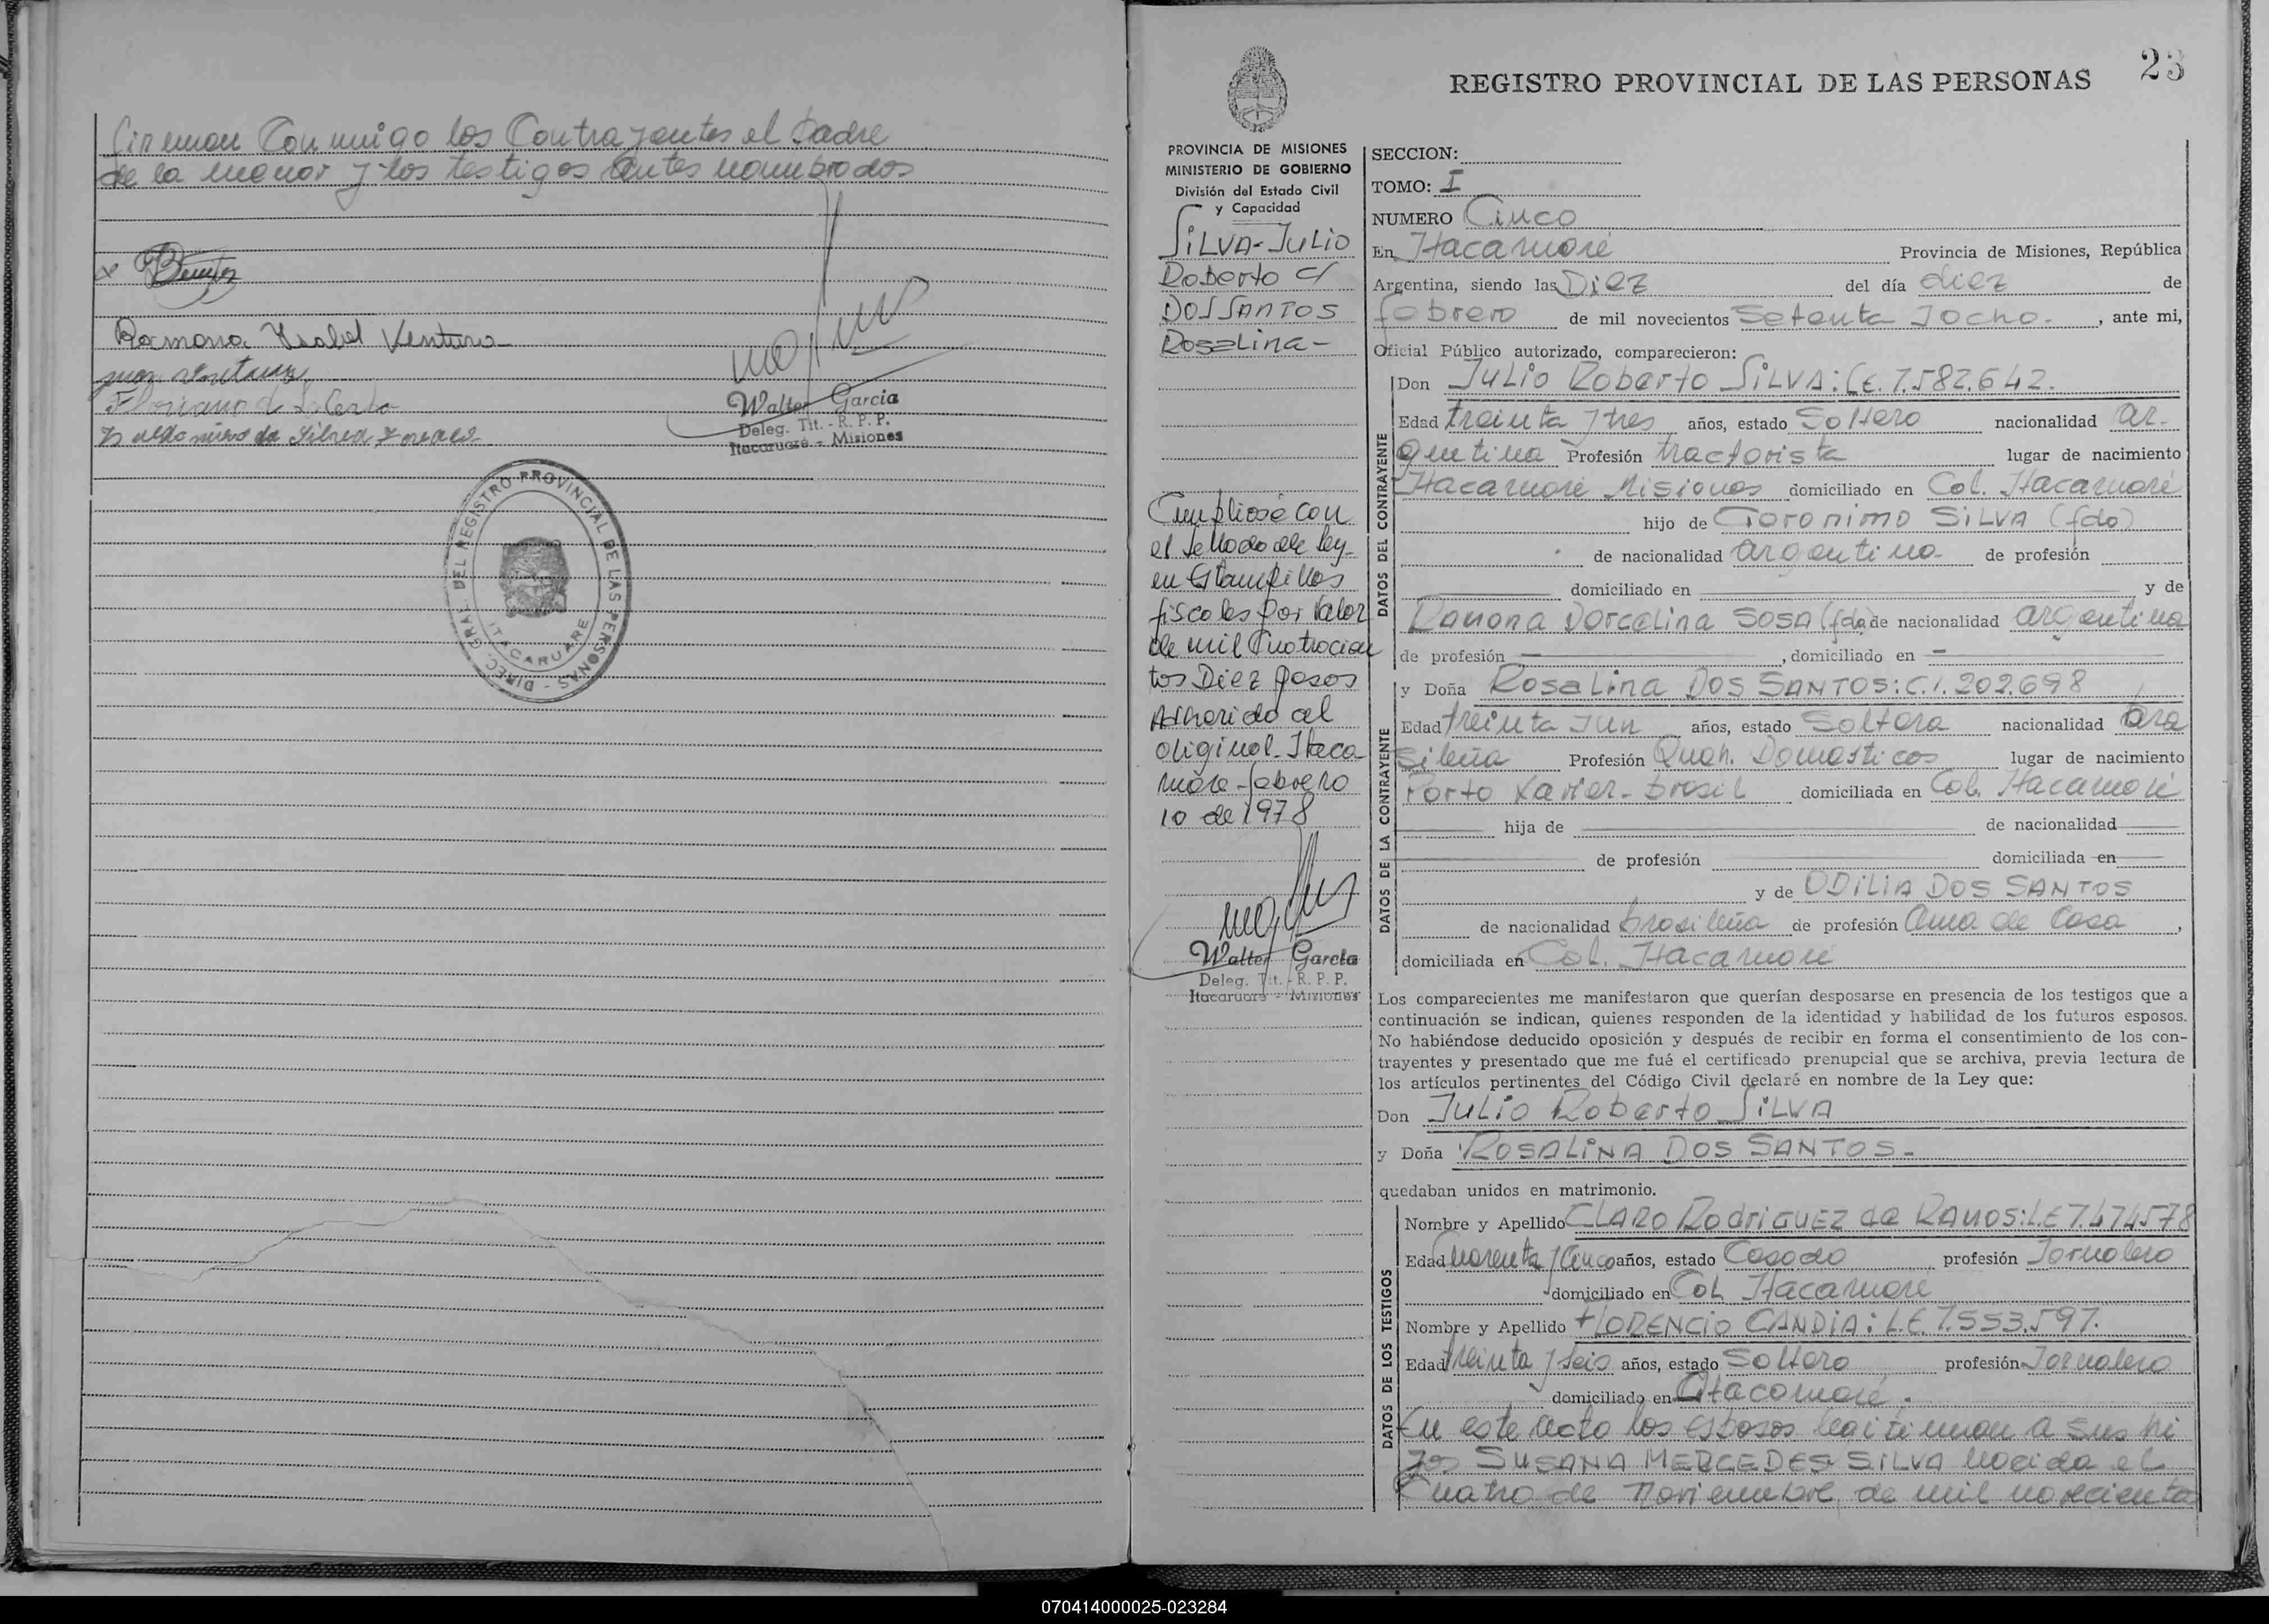 firman Conmigo los Contrayentes el padre
de la menor y los testigos antes nombrados
Ramona Ysabel Ventura
Walter Garcia
Deleg. Tit. - R. P. P.
Itacaruaré - Misiones
DIREC. GRAL. DEL REGISTRO PROVINCIAL DE LAS PERSONAS -
ITACARUARE
23
REGISTRO PROVINCIAL DE LAS PERSONAS
PROVINCIA DE MISIONES
MINISTERIO DE GOBIERNO
División del Estado Civil
y Capacidad
SILVA-JULIO
Roberto c/
DOS SANTOS
Rosalina-
Cumpliose con
el Sellado de ley
en Estampillas
fiscales por Valor
de mil Cuatrocien
tos Diez pesos
Adherido al
original-Itaca
ruare-febrero
10 de 1978
Walter Garcia
Deleg. Tit. - R. P. P.
Itacaruaré - Misiones
SECCION:
TOMO: I
NUMERO Cinco
En Itacaruaré Provincia de Misiones, República
Argentina, siendo las Diez del día diez de
febrero de mil novecientos Setenta y ocho. , ante mi,
Oficial Público autorizado, comparecieron:
DATOS DEL CONTRAYENTE
Don Julio Roberto SILVA: L.E. 7.582.642.
Edad treinta y tres años, estado Soltero nacionalidad ar-
gentina Profesión tractorista lugar de nacimiento
Itacaruaré Misiones domiciliado en Col. Itacaruaré
hijo de Geronimo SILVA (fdo)
de nacionalidad argentina de profesión
domiciliado en y de
Ramona Dorcelina SOSA (fda) de nacionalidad argentina
de profesión — , domiciliado en —
DATOS DE LA CONTRAYENTE
y Doña Rosalina DOS SANTOS: C.I. 202.698
Edad treinta y un años, estado Soltera nacionalidad bra
sileña Profesión Queh. Domesticos lugar de nacimiento
Porto Xavier-Brasil domiciliada en Col. Itacaruaré
hija de de nacionalidad
de profesión domiciliada en
y de ODILIA DOS SANTOS
de nacionalidad brasileña de profesión Ama de Casa ,
domiciliada en Col. Itacaruaré
Los comparecientes me manifestaron que querían desposarse en presencia de los testigos que a
continuación se indican, quienes responden de la identidad y habilidad de los futuros esposos.
No habiéndose deducido oposición y después de recibir en forma el consentimiento de los con-
trayentes y presentado que me fué el certificado prenupcial que se archiva, previa lectura de
los artículos pertinentes del Código Civil declaré en nombre de la Ley que:
Don Julio Roberto SILVA
y Doña ROSALINA DOS SANTOS.-
quedaban unidos en matrimonio.
DATOS DE LOS TESTIGOS
Nombre y Apellido CLARO RodriGUEZ de RAMOS: L.E 7.474.578
Edad Cuarenta y Cinco años, estado Casado profesión Jornalero
domiciliado en Col. Itacaruaré
Nombre y Apellido FLORENCIO CANDIA: L.E. 7.553.597.
Edad treinta y seis años, estado Soltero profesión Jornalero
domiciliado en Itacaruaré.
En este acto los esposos legitiman a sus hi
jos SUSANA MERCEDES SILVA nacida el
Cuatro de Noviembre de mil novecientos
070414000025-023284